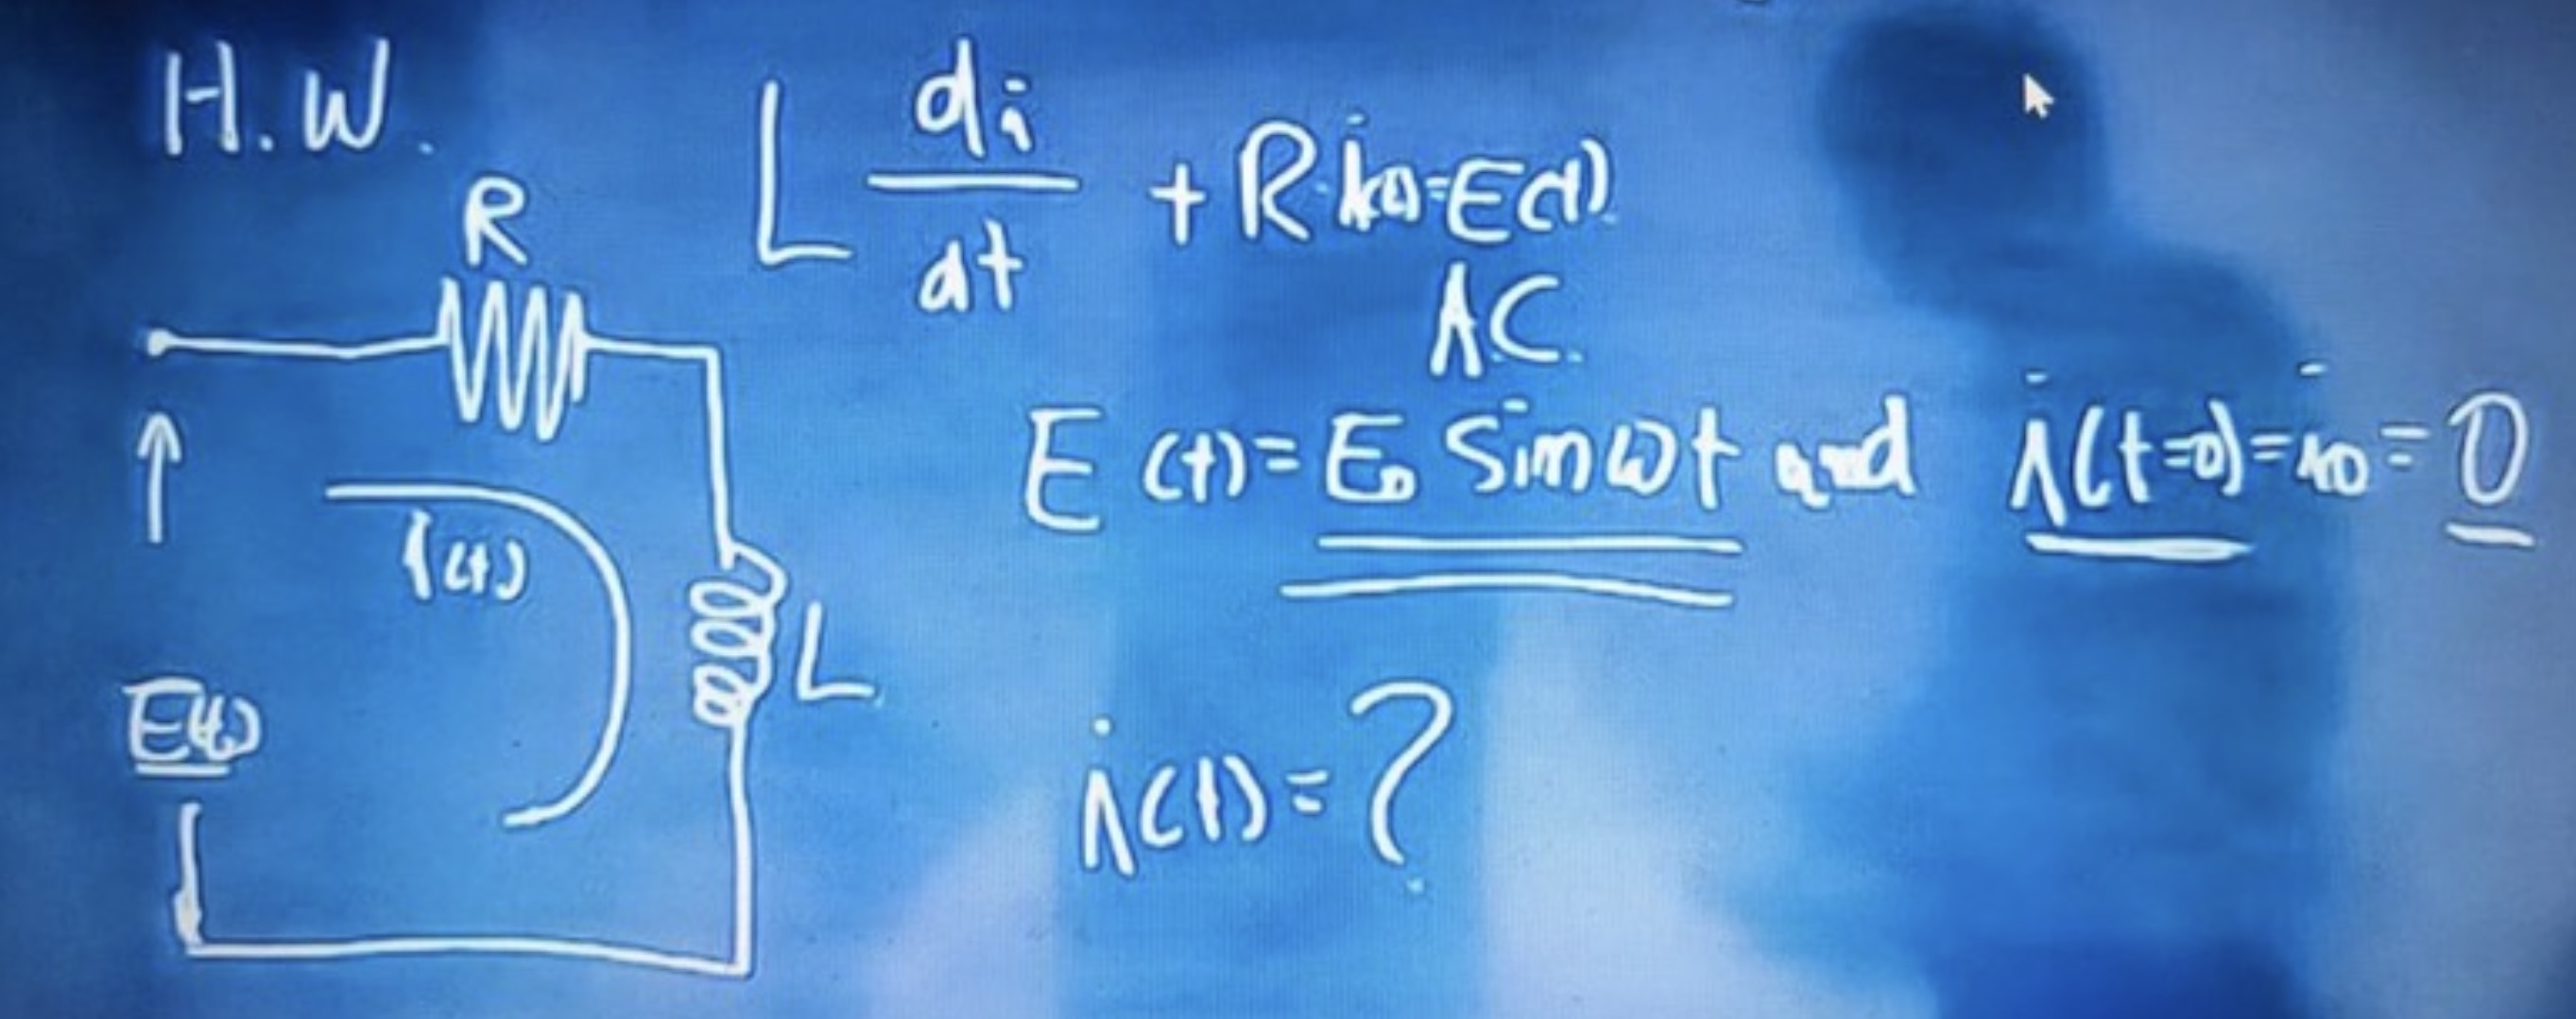 H.W.
L di/dt + R i(t) = E(t)
R
A.C.
E(t) = E₀ Sin ωt and i(t=0) = i₀ = 0
i(t)
L
E(t)
i(t) = ?